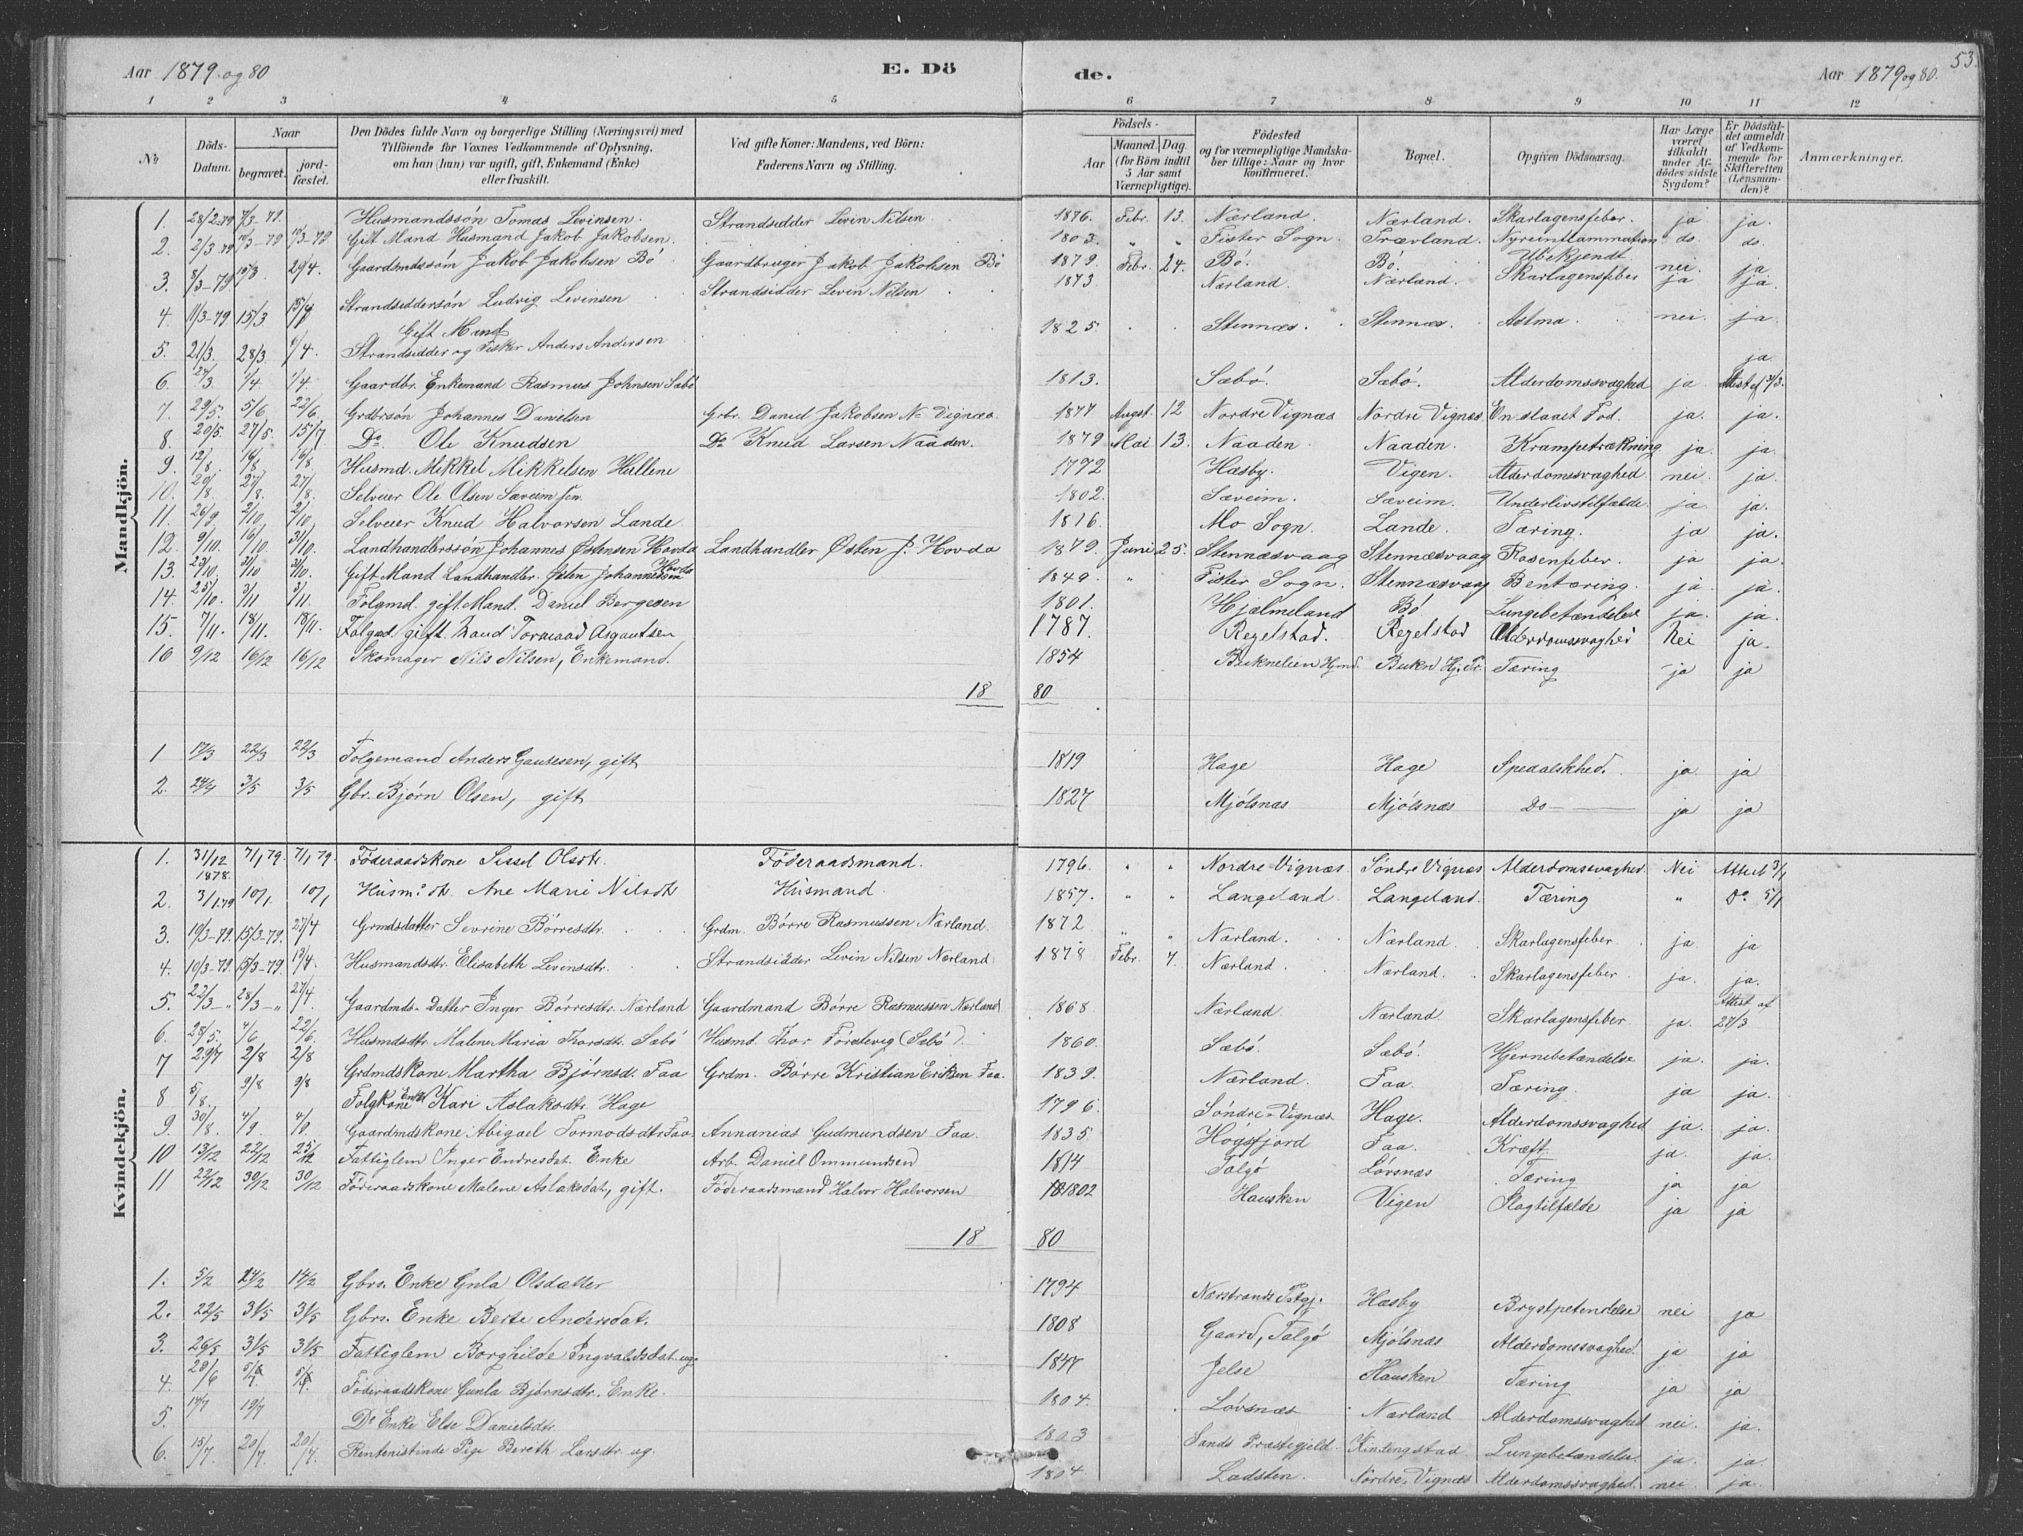 Aar 1879 og 80
E. Dö
de.
Aar 1879 og 80.
53.
1 2 3 4 5 6 7 8 9 10 11 12
No
Döds-Datum.
Naar
begravet.
jord-fæstet.
Den Dödes fulde Navn og borgerlige Stilling (Næringsvei) med
Tilföiende for Voxnes Vedkommende af Oplysning,
om han (hun) var ugift, gift, Enkemand (Enke)
eller fraskilt.
Ved gifte Koner: Mandens, ved Börn:
Faderens Navn og Stilling.
Födsels-
Aar
Maaned. Dag.
(for Börn indtil
5 Aar samt
Værnepligtige).
Födested
og for værnepligtige Mandska-
ber tillige: Naar og hvor
konfirmeret.
Bopæl.
Opgiven Dödsaarsag.
Har Læge
været
tilkaldt
under Af-
dödes sidste
Sygdom?
Er Dödsfal-
det anmeldt
af Vedkom-
mende for
Skifteretten
(Lensman-
den)?
Anmærkninger.
Mandkjön.
1. 28/2-79 7/3-79. Husmandssön Tomas Levinsen. Strandsidder Levin Nilsen 1876. Febr. 13. Nærland. Nærland. Skarlagensfeber. ja ja.
2. 2/3-79 10/3-79 10/3-79 Gift Mand Husmand Jakob Jakobsen. 1803. " " Fister Sogn. Trævland. Nyreinflammation ds. ds.
3. 8/3-79 15/3 29/4. Gaardmdssön Jakob Jakobsen Bö Gaardbruger Jakob Jakobsen Bö 1879. Febr. 24. Bö. Bö. Ubekjendt nei. ja
4. 11/3-79 15/3 Strandsiddersön Ludvig Levinsen Strandsidder Levin Nilsen 1873 Nærland. Nærland. Skarlagensfeber ja ja.
5. 21/3. 28/3 Gift Mand Strandsidder og Fisker Anders Andersen 1825. Stennæs. Stennæs. Astma nei. ja.
6. 27/3. 1/4 1/4. Gaardbr. Enkemand Rasmus Johnsen Sæbö 1813. Sæbö. Sæbö. Alderdomssvaghed ja. ja. Attest af 31/3.
7. 29/5. 5/6 22/6. Grdbrsön Johannes Danielsen Grbr. Daniel Jakobsen N. Vignæs 1877 Augst. 12 Nordre Vignæs Nordre Vignæs En slaaet Fod. ja. ja.
8. 20/5. 27/5 15/7 Do Ole Knudsen Do Knud Larsen Naaden. 1879 Mai 13. Naaden. Naaden. Krampetrækning ja. ja.
9. 12/8. 16/8 16/8. Husmd. Mikkel Mikkelsen Hullene 1792 Hæsby. Vigen. Alderdomssvaghed nei. ja.
10. 20/8. 27/8. 27/8. Selveier Ole Olsen Sæveim sen. 1802. Sæveim. Sæveim. Underlivstilfælde. ja ja.
11. 26/9. 2/10 2/10. Selveier Knud Halvorsen Lande. 1816. Mo Sogn. Lande. Tæring. ja ja.
12. 9/10. 16/10 31/10. Landhandlerssön Johannes Østensen Hovda Landhandler Østen J. Hovda 1879. Juni 25. Stennæsvaag Stennæsvaag Rosenfeber. ja ja.
13. 23/10. 31/10 31/10. Gift Mand Landhandler. Østen Johannessen Hovda 1849. " Fister Sogn. Stennæsvaag Bentæring. ja. ja.
14. 25/10. 3/11 3/11. Folgmd. gift Mand. Daniel Bergesen 1801. Hjælmeland Bö Lungebetændelse ja. ja.
15. 7/11. 18/11. 18/11. Folgmd. gift Mand Tormod Asgautsen 1787. Regelstad. Regelstad Alderdomssvaghed Nei ja.
16 9/12 16/12 16/12 Skomager Nils Nilsen, Enkemand. 1854 Buknelien Hjmd. Bukn Hj. Pr. Tæring ja ja
18 80
1 17/3 22/3 22/3 Folgemand Anders Gautesen, gift 1819 Hage Hage Spedalskhed. ja ja
2. 24/4 3/5 3/5 Gbr. Björn Olsen, gift 1827 Mjölsnæs Mjölsnæs Do ja ja
Kvindekjön.
1. 31/12 1878. 7/1 79. 7/1 79. Föderaadskone Sissel Olsdtr. Föderaadsmand. 1796. " " Nordre-Vignæs Söndre Vignæs Alderdomssvaghed Nei Attest 3/1
2. 3/1-79 10/1 10/1 Husm: dtr. Ane Marie Nilsdtr Husmand. 1857. " " Langeland. Langeland. Tæring " Do 5/1
3. 10/3-79. 15/3-79. 27/4 Grmdsdatter Sevrine Börresdtr. Grdm. Börre Rasmussen Nærland. 1872 " " Nærland. Nærland. Skarlagensfeber ja ja
4. 10/3-79. 15/3-79 Husmandsdtr. Elisabeth Levinsdtr. Strandsidder Levin Nilsen Nærland 1878 Febr. 7. Nærland. Nærland. Skarlagensfeber ja. ja.
5. 22/3-" 28/3-" 27/4. Gaardmds-Datter Inger Börresdtr. Nærland Gaardmand Börre Rasmussen Nærland 1868 Nærland. Nærland. Skarlagensfeber ja. Attest af 27/3
6. 28/5. 4/6 22/6. Husmdsdtr Malene Maria Thorsdtr Sæbö Husmd. Thor Förelevig (Sæbö) 1860. Sæbö. Sæbö. Hjernebetændelse ja. ja.
7 29/7 2/8 2/8 Grdmdskone Martha Björnsd. Faa Grdm. Börre Kristian Eriksen Faa. 1839. Nærland. Faa. Tæring. ja ja.
8 5/8. 9/8 9/8 Folgkone Enke Kari Aslaksdtr. Hage 1796. Söndre-Vignæs Hage. Alderdomssvaghed ja. ja.
9. 30/8. 4/9 Gaardmdskone Abigael Tormodsdtr Faa. Annanias Gudmundsen Faa. 1835. Högsfjord Faa. Kræft ja. ja.
10 13/12 22/12 Fattiglem Inger Endresdat. Enke Arb. Daniel Ommundsen 1814 Talgö Lövsnæs Tæring ja ja
11 22/12 30/12 30/12 Föderaadskone Malene Aslaksdat, gift. Föderaadsmand Halvor Halvorsen 1802 Hausken Vigen Slagtilfælde ja ja
18 80
1. 5/2 14/2 14/2 Gbrs. Enke Gula Olsdatter 1794 Nærstrands Pstgj. Hæsby Brystbetendelse nei ja
2. 22/5 31/5 31/5 Gbrs. Enke Berte Andersdat. 1808 Gaard, Talgö Mjölsnæs Alderdomssvaghed ja ja
3. 26/5 31/5 31/5 Fattiglem Borghilde Ingvaldsdat. ug. 1847 Jelse Hausken Tæring ja ja
4. 29/6 Föderaadskone Gunla Björnsdtr. Enke. 1804. Lövsnæs Nærland Alderdomssvaghed nei. ja.
5. 14/7 19/7 Do Enke Else Danielsdtr. 1803 Sands Præstegjeld Kindingstad Lungebetændelse. ja. ja.
6. 15/7. 20/7 20/7 Rentenistinde Pige Bereth Larsdtr. ug. 1804. Ladsten. Nordre-Vignæs Alderdomssvaghed. nei ja.